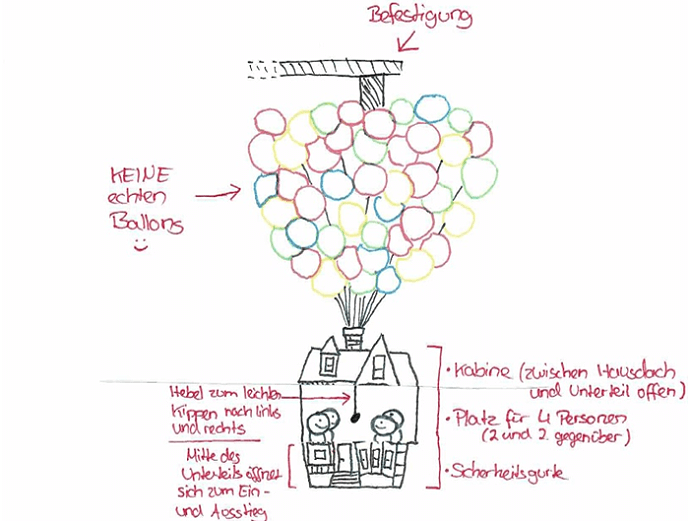 Befestigung
KEINE
echten
Ballons
Hebel zum leichten
Kippen nach links
und rechts
Mitte des
Unterteils öffnet
sich zum Ein-
und Ausstieg
• Kabine (zwischen Hausdach
und Unterteil offen)
• Platz für 4 Personen
(2 und 2 gegenüber)
• Sicherheitsgurte